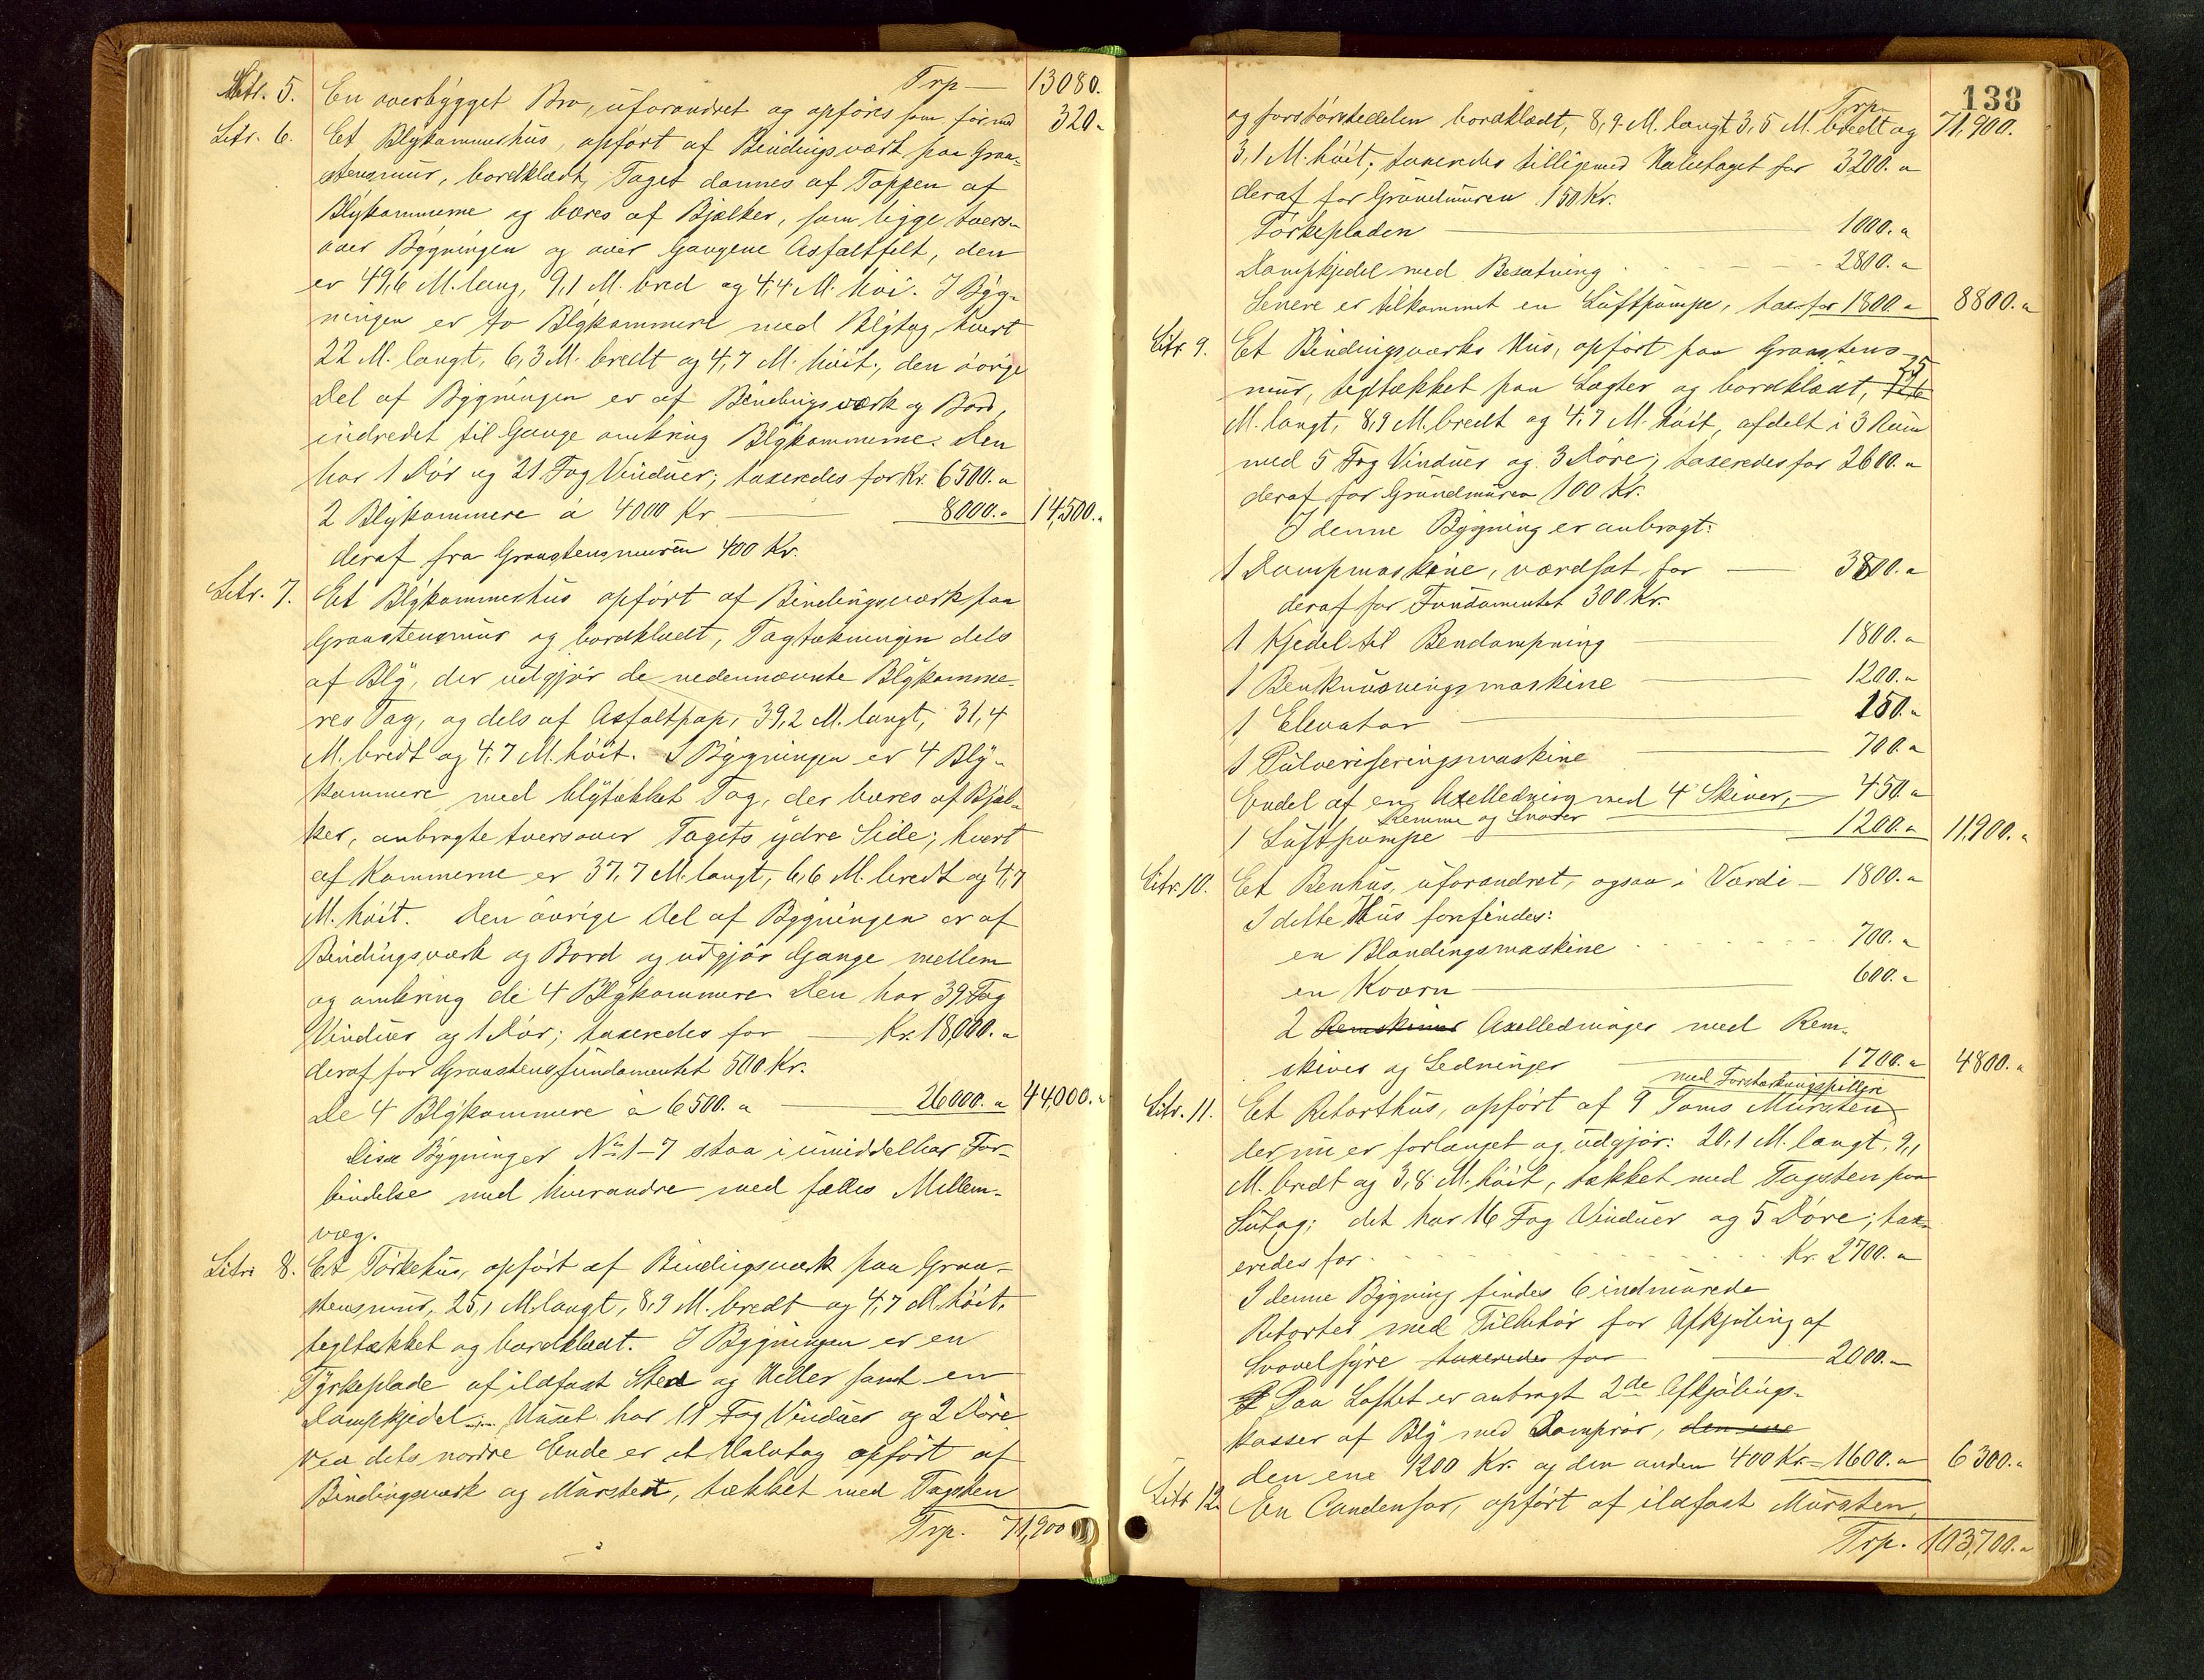 Trp — 13080.
Litr. 5. En overbygget Bro, uforandret og opføres som før med 320.-
Litr. 6. Et Blykammerhus, opført af Bindingsværk paa Graa-
stensmur, bordklædt, Taget dannes af Toppen af
Blykammerne og bæres af Bjælker, som ligge tvers-
over Bygningen og over Gangene Asfaltfilt, den
er 49,6 M. lang, 9,1 M. bred og 4,4 M. høi. I Byg-
ningen er to Blykammere med Blytag, hvert
22 M. langt, 6,3 M. bredt og 4,7 M. høit, den øvrige
Del af Bygningen er af Bindingsværk og Bord,
indredet til Gange omkring Blykammerne. Den
har 1 Dør og 21 Fag Vinduer; taxeredes for Kr. 6500.-
2 Blykammere à 4000 Kr — 8000.- 14,500.-
deraf fra Graastensmuren 400 Kr.
Litr. 7. Et Blykammerhus opført af Bindingsværk paa
Graastensmur og bordklædt, Tagtækningen dels
af Bly, der udgjør de nedennævnte Blykamme-
res Tag, og dels af Asfaltpap, 39,2 M. langt, 31,4
M. bredt og 4,7 M. høit. I Bygningen er 4 Bly-
kammere med blytækket Tag, der bæres af Bjæl-
ker, anbragte tversover Tagets ydre Side; hvert
af Kammerne er 37,7 M. langt, 6,6 M. bredt og 4,7
M. høit. Den øvrige Del af Bygningen er af
Bindingsværk og Bord og udgjør Gange mellem
og omkring de 4 Blykammere. Den har 39 Fag
Vinduer og 1 Dør; taxeredes for — Kr. 18,000.-
deraf for Graastensfundamentet 500 Kr.
De 4 Blykammere à 6500.- — 26000.- 44,000.-
Disse Bygninger No 1-7 staa i umiddelbar For-
bindelse med hverandre med fælles Mellem-
væg.
Litr. 8. Et Tørkehus, opført af Bindingsværk paa Graa-
stensmur, 25,1 M. langt, 8,9 M. bredt og 4,7 M. høit,
tegltækket og bordklædt. I Bygningen er en
Tyrkeplade af ildfast Sten og Heller samt en
Dampkjedel. Huset har 11 Fag Vinduer og 2 Døre
Ved dets nordre Ende er et Halvtag opført af
Bindingsværk og Mursten, tækket med Tagsten
Trp. 71,900
138
Trp. 71,900.
og forstørstedelen bordklædt, 8,9 M. langt 3,5 M. bredt og
3,1 M. høit; taxeredes tilligemed Halvtaget for 3200.-
deraf for Grundmuren 150 Kr.
Tørkepladen — 1000.-
Dampkjedel med Besætning — 2800.-
Senere er tilkommet en Luftpumpe, tax. for 1800.- 8800.-
Litr. 9. Et Bindingsværks Hus, opført paa Graastens-
25
mur, tegltækket paa Lægter og bordklædt,
M. langt, 8,9 M. bredt og 4,7 M. høit, afdelt i 3 Rum
med 5 Fag Vinduer og 3 Døre; taxeredes for 2600.-
deraf for Grundmuren 100 Kr.
I denne Bygning er anbragt:
1 Dampmaskine, værdsat for — 3800.-
deraf for Fundamentet 300 Kr.
1 Kjedel til Bendampning — 1800.-
1 Benknusningsmaskine — 1200.-
1 Elevator — 150.-
1 Pulveriseringsmaskine — 700.-
Endel af en Axelledning med 4 Skiver, — 450.-
Remme og Snorer
1 Luftpumpe — 1200.- 11,900.-
Litr. 10. Et Benhus, uforandret, ogsaa i Værdi — 1800.-
I dette Hus forefindes:
en Blandingsmaskine — 700.-
en Kværn — 600.-
2 Remskiver Axelledninger med Rem-
skiver og Ledninger — 1700.- 4800.-
med Forstærkningspillere
Litr. 11. Et Retorthus, opført af 9 Toms Mursten
der nu er forlænget og udgjør: 20,1 M. langt, 9,1
M. bredt og 3,8 M. høit, tækket med Tagsten paa
Sutag; det har 16 Fag Vinduer og 5 Døre; tax-
eredes for — Kr. 2700.-
I denne Bygning findes 6 indmurede
Retorter med Tilbehør for Afkjøling af
Svovelsyre taxeredes for — 2000.-
Paa Loftet er anbragt 2de Afkjølings-
kasser af Bly med Damprør, den ene
den ene 1200 Kr. og den anden 400 Kr. = 1600.- 6300.-
Litr 12. En Condensor, opført af ildfast Mursten,
Trp. 103,700.-